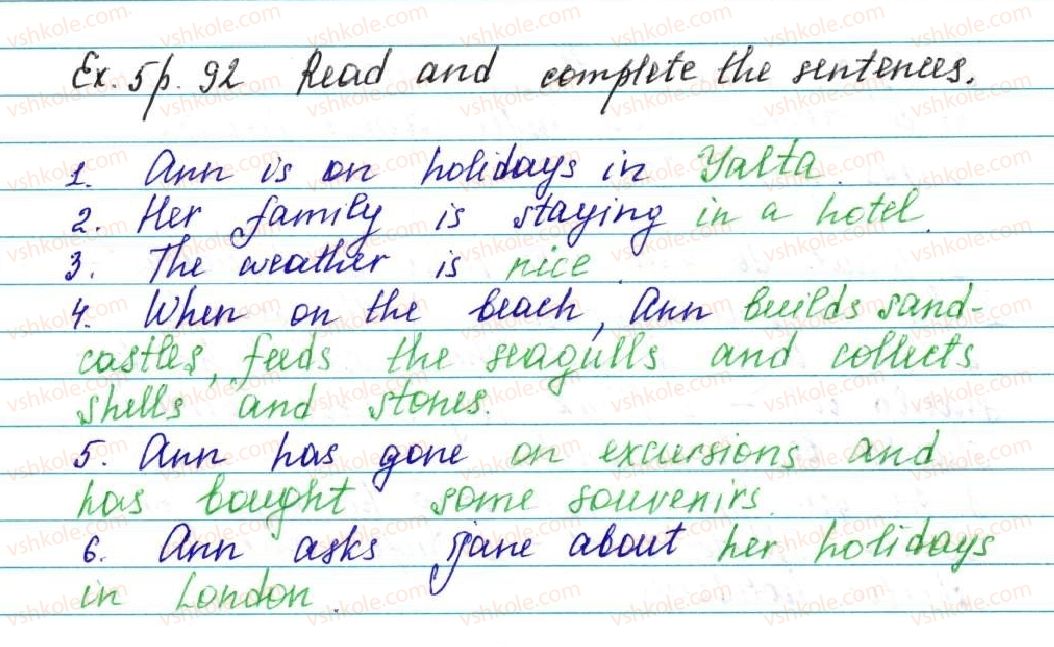 Ex. 5 p. 92 Read and complete the sentences.
1. Ann is on holidays in Yalta.
2. Her family is staying in a hotel.
3. The weather is nice.
4. When on the beach, Ann builds sand-
castles, feeds the seagulls and collects
shells and stones.
5. Ann has gone on excursions and
has bought some souvenirs.
6. Ann asks Jane about her holidays
in London.